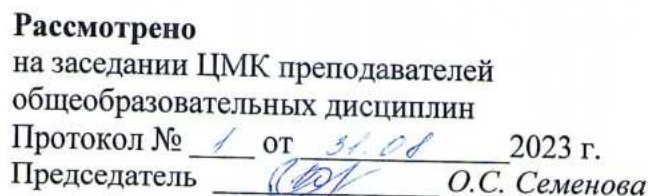 Рассмотрено
на заседании ЦМК преподавателей
общеобразовательных дисциплин
Протокол № 1 от 31.08 2023 г.
Председатель О.С. Семенова